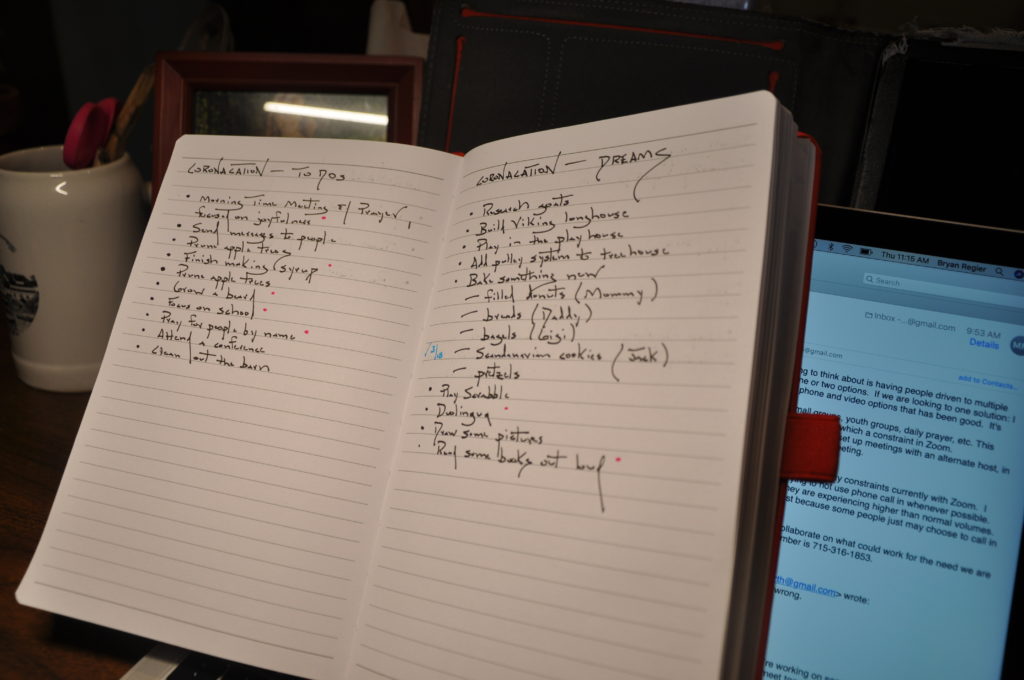 CORONACATION — TO DOS
• Morning Time Meeting of Prayer,
focused on joyfulness
• Send messages to people
• Prune apple trees
• Finish making syrup
• Prune apple trees
• Grow a beard
• Focus on school
• Pray for people by name
• Attend a conference
• Clean out the barn
CORONACATION — DREAMS
• Research goats
• Build Viking longhouse
• Play in the play house
• Add pulley system to treehouse
• Bake something new
— filled donuts (Mommy)
— breads (Daddy)
— bagels (Gigi)
— Scandanavian cookies (Jack)
— pretzels
• Play Scrabble
• Duolingua
• Draw some pictures
• Read some books out loud
Thu 11:15 AM Bryan Regier
Search
Inbox - ...@gmail.com 9:53 AM
Details
@gmail.com
add to Contacts...
g to think about is having people driven to multiple
e or two options. If we are looking to one solution: I
phone and video options that has been good. It's
mall groups, youth groups, daily prayer, etc. This
which a constraint in Zoom.
set up meetings with an alternate host, in
eeting.
y constraints currently with Zoom. I
ying to not use phone call in whenever possible.
hey are experiencing higher than normal volumes.
st because some people just may choose to call in
ollaborate on what could work for the need we are
mber is 715-316-1853.
th@gmail.com> wrote:
wrong.
re working on